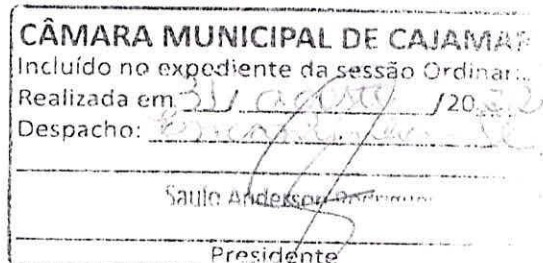 CÂMARA MUNICIPAL DE CAJAMAR
Incluído no expediente da sessão Ordinar
Realizada em 31/ agosto /2022
Despacho: Encaminhe-se
Saulo Anderson
Presidente